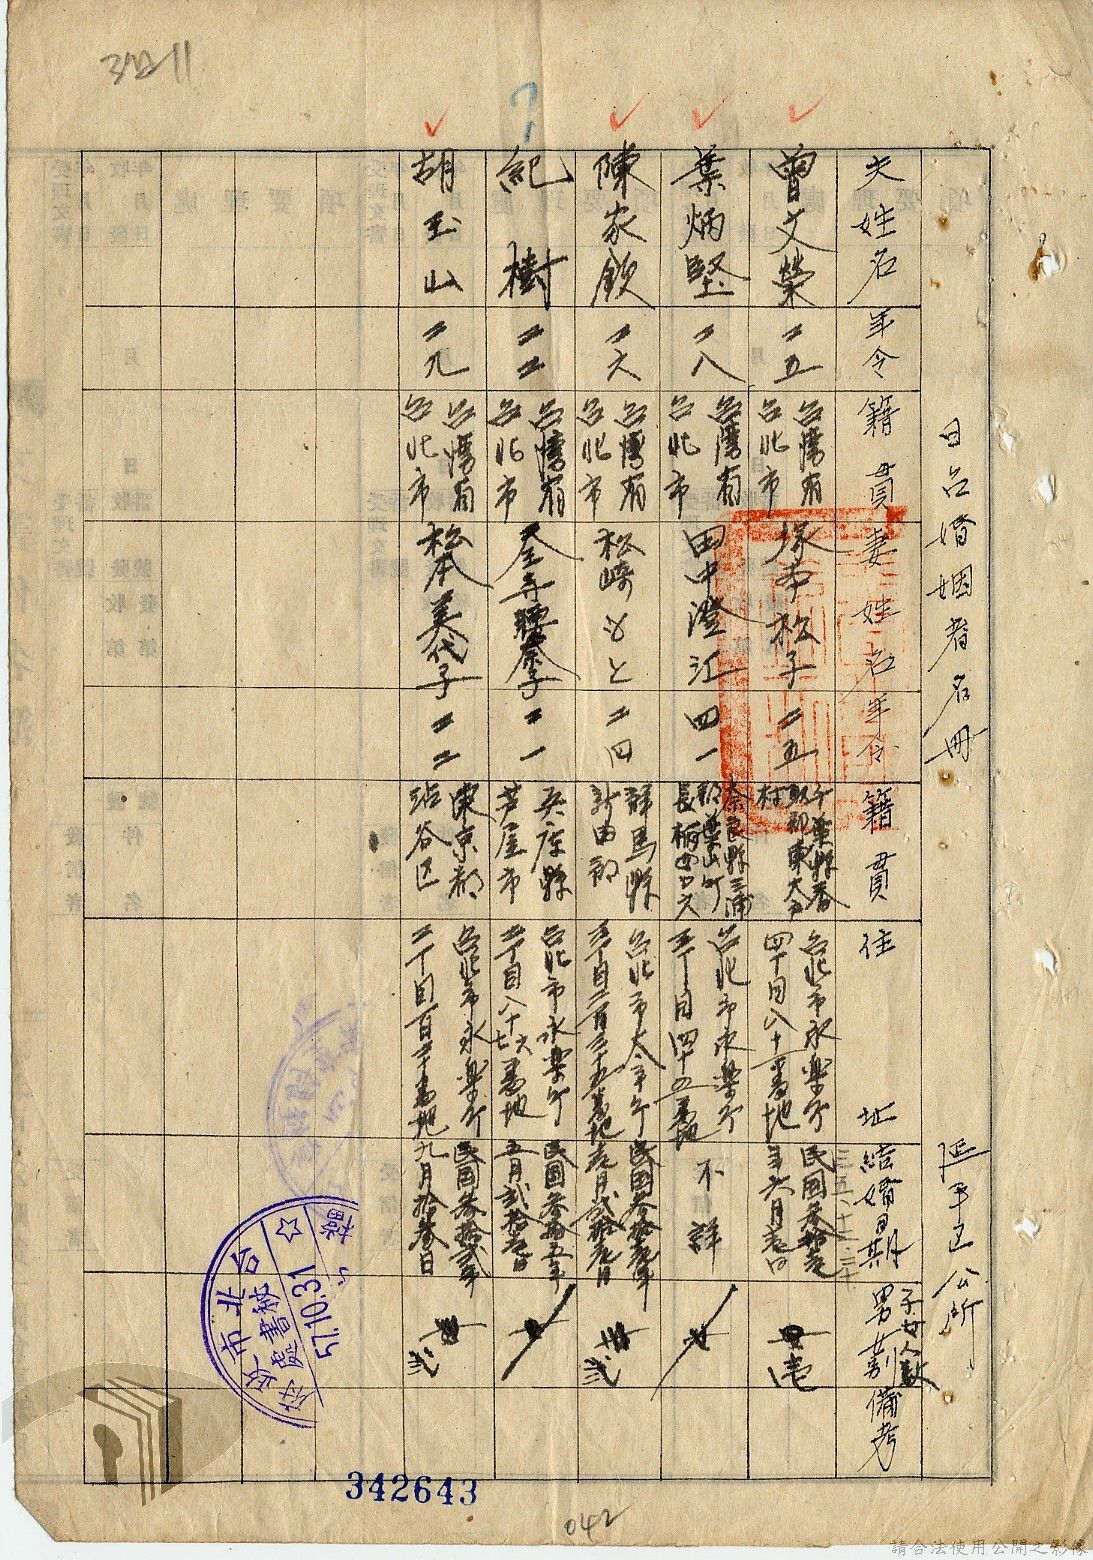 日台婚姻者名册
延平区公所
夫姓名
年令
籍貫
妻姓名
年令
籍貫
住址
結婚日期
子女人數
男
備考
曾文榮
二五
台湾省
台北市
塚本松子
二五
千葉縣香
村
台北市永樂町
四丁目八十一番地
民國叁拾
年六月
壱
葉炳堅
二八
台湾省
台北市
田中澄江
四一
奈良縣三浦
郡葉山町
長柄四六
台北市永樂町
三丁目四十五番地
不詳
陳家欽
二六
台湾省
台北市
松崎もと
二四
群馬縣
新田郡
台北市太平町
三丁目二百三十五番地
民國叁拾
弐
紀樹
二二
台湾省
台北市
二一
兵庫縣
芦屋市
台北市永樂町
三丁目八十六番地
民國叁拾五年
五月弐拾壱日
胡玉山
二九
台湾省
台北市
松本美代子
二二
東京都
渋谷区
台北市永樂町
二丁目百三十番地
民國叁拾弐年
九月拾叁日
弐
台北市政府
秘書處
57.10.31
檔
342643
042
請合法使用公開之影像